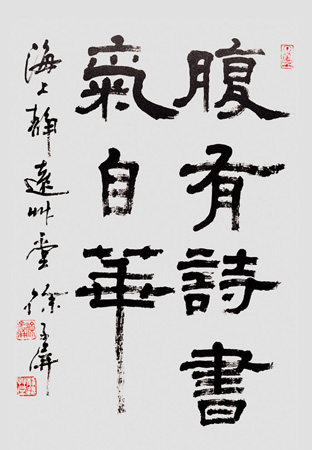 腹有詩書
氣自華
海上靜遠草堂徐子屏